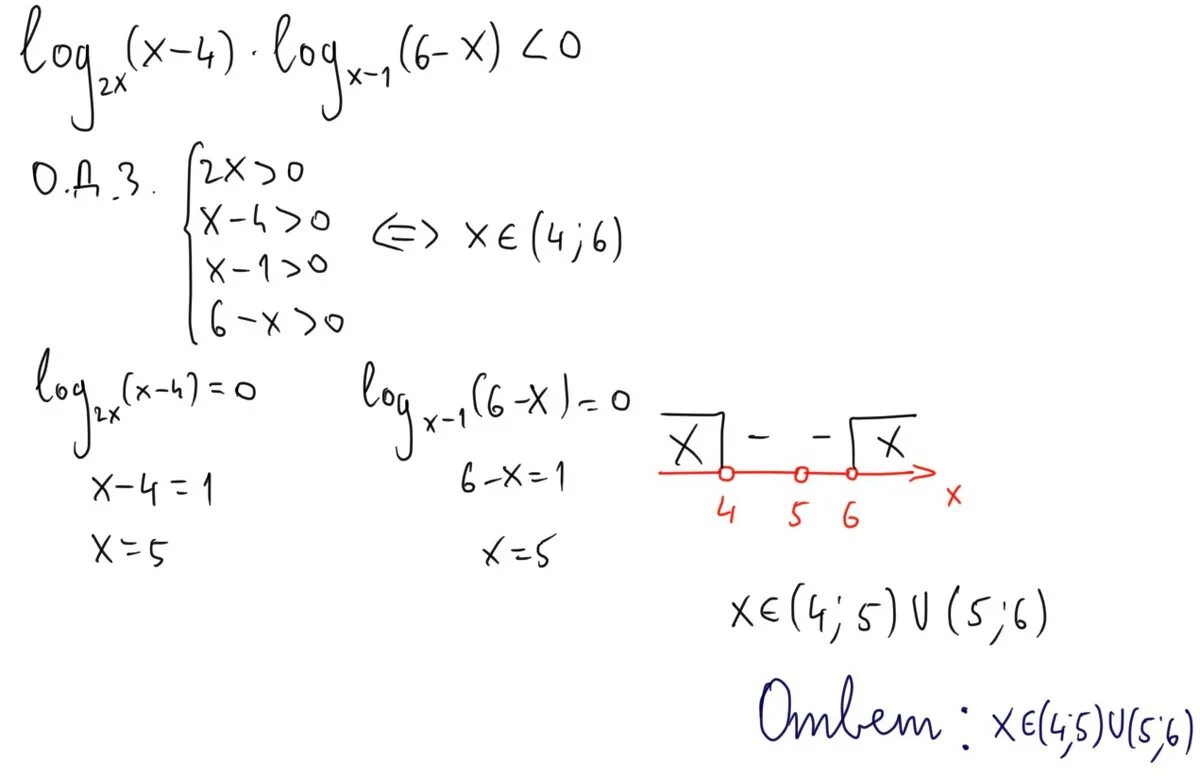 log₂ₓ(x−4) · logₓ₋₁(6−x) < 0
О.Д.З. { 2x>0
x−4>0
x−1>0
6−x>0
⇔ x∈(4;6)
log₂ₓ(x−4)=0
x−4=1
x=5
logₓ₋₁(6−x)=0
6−x=1
x=5
x − − x
4 5 6 x
x∈(4;5)∪(5;6)
Ответ: x∈(4;5)∪(5;6)